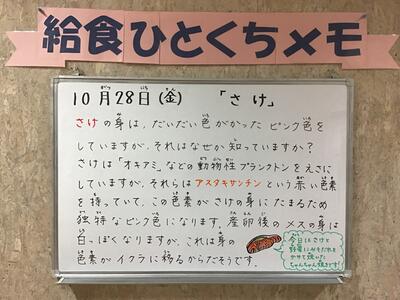 給食ひとくちメモ
10月28日(金) 「さけ」
さけの身は、だいだい色がかったピンク色を
していますが、それはなぜか知っていますか?
さけは「オキアミ」などの動物性プランクトンをえさに
していますが、それらはアスタキサンチンという赤い色素
を持っていて、この色素がさけの身にたまるため
独特なピンク色になります。産卵後のメスの身は
白っぽくなりますが、これは身の
色素がイクラに移るからだそうです。
今日はさけと
野菜にみそだれを
かけて焼いた
ちゃんちゃん焼きです!